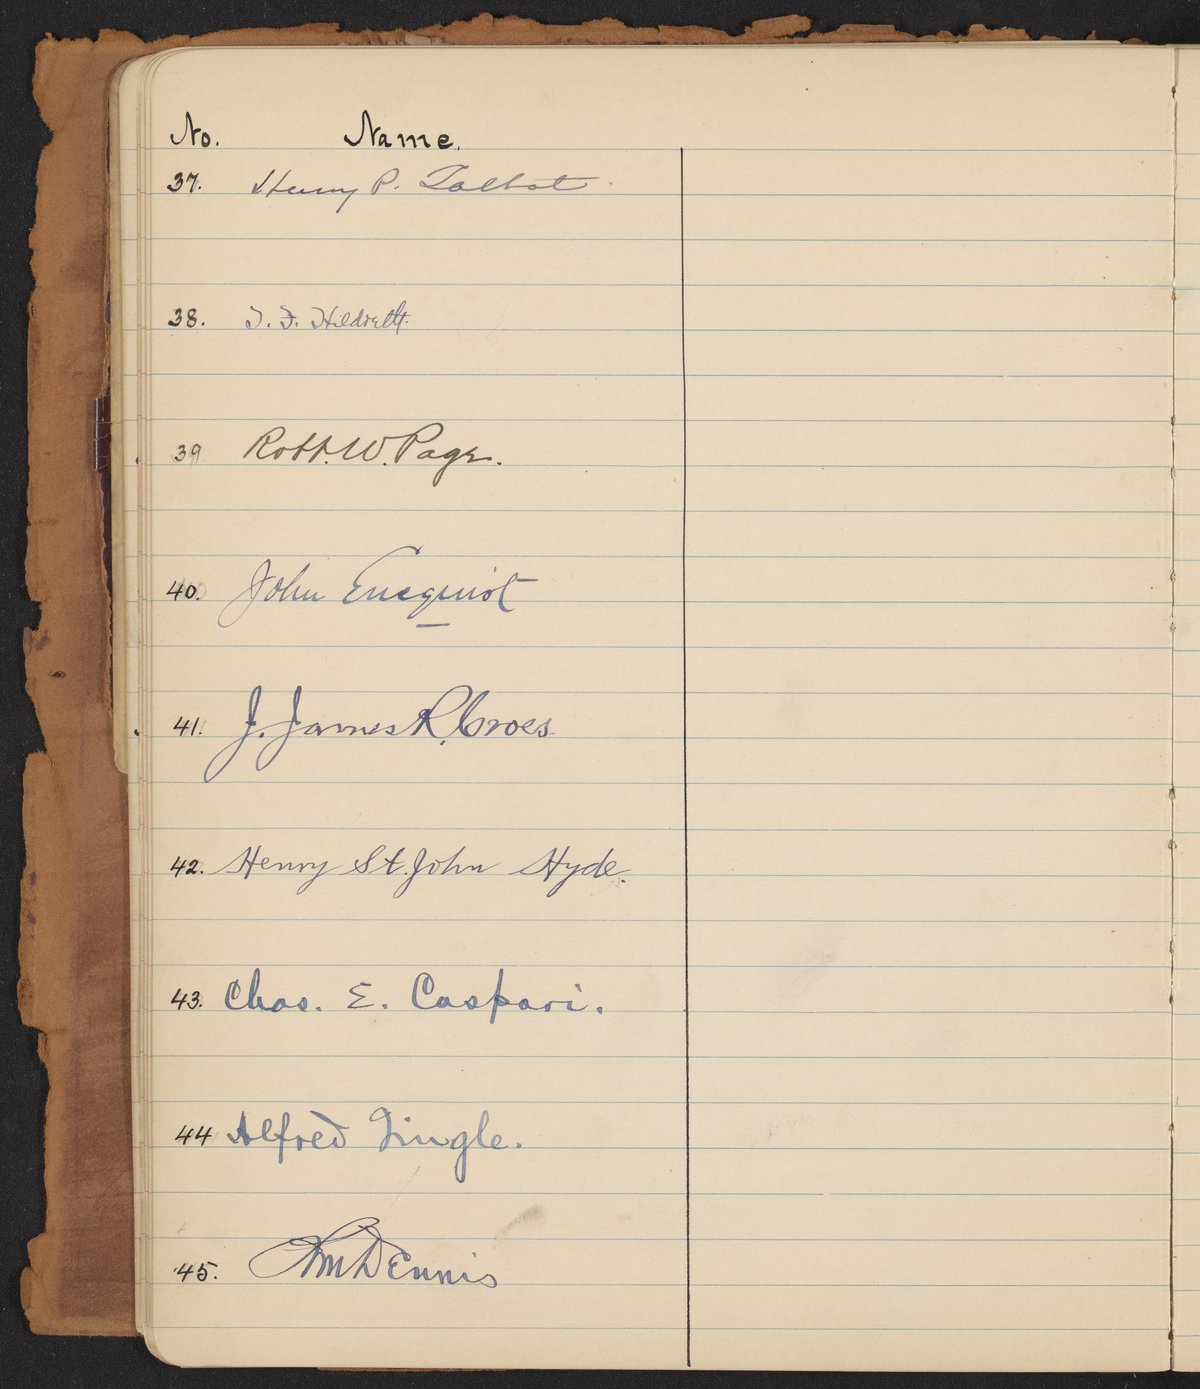 No. Name.
37. Henry P. Talbot
38. Hildreth.
39 Robt. W. Page.
40. John Enequist
41. J. James R. Croes
42. Henry St. John Hyde.
43. Chas. E. Caspari.
44 Alfred Tingle.
45. Dennis